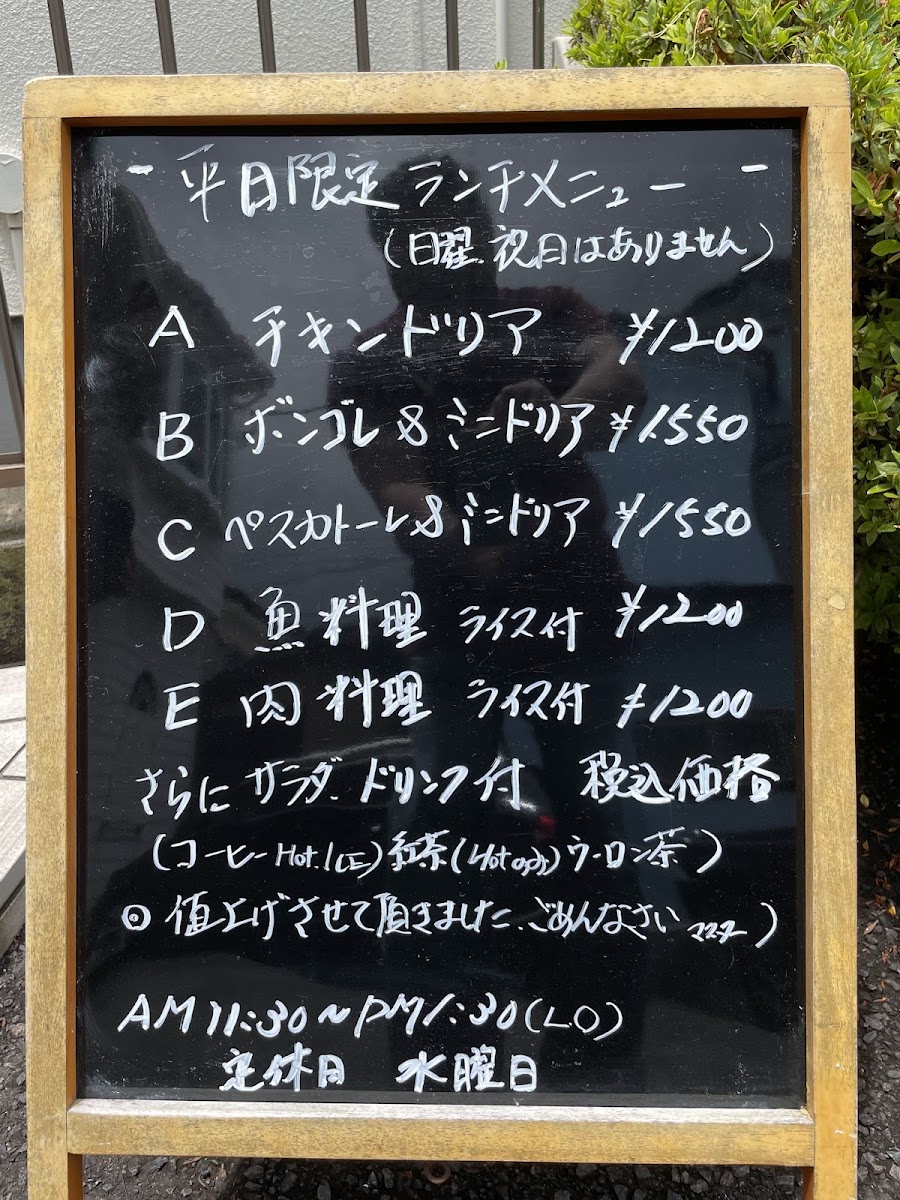 - 平日限定 ランチメニュー -
(日曜.祝日はありません)
A チキンドリア ¥1200
B ボンゴレ & ミニドリア ¥1550
C ペスカトーレ & ミニドリア ¥1550
D 魚料理 ライス付 ¥1200
E 肉料理 ライス付 ¥1200
さらに サラダ.ドリンク付 税込価格
(コーヒーHot.ICE)紅茶(Hot only)ウーロン茶)
◎値上げさせて頂きました.ごめんなさい マスター)
AM11:30~PM1:30(LO)
定休日 水曜日